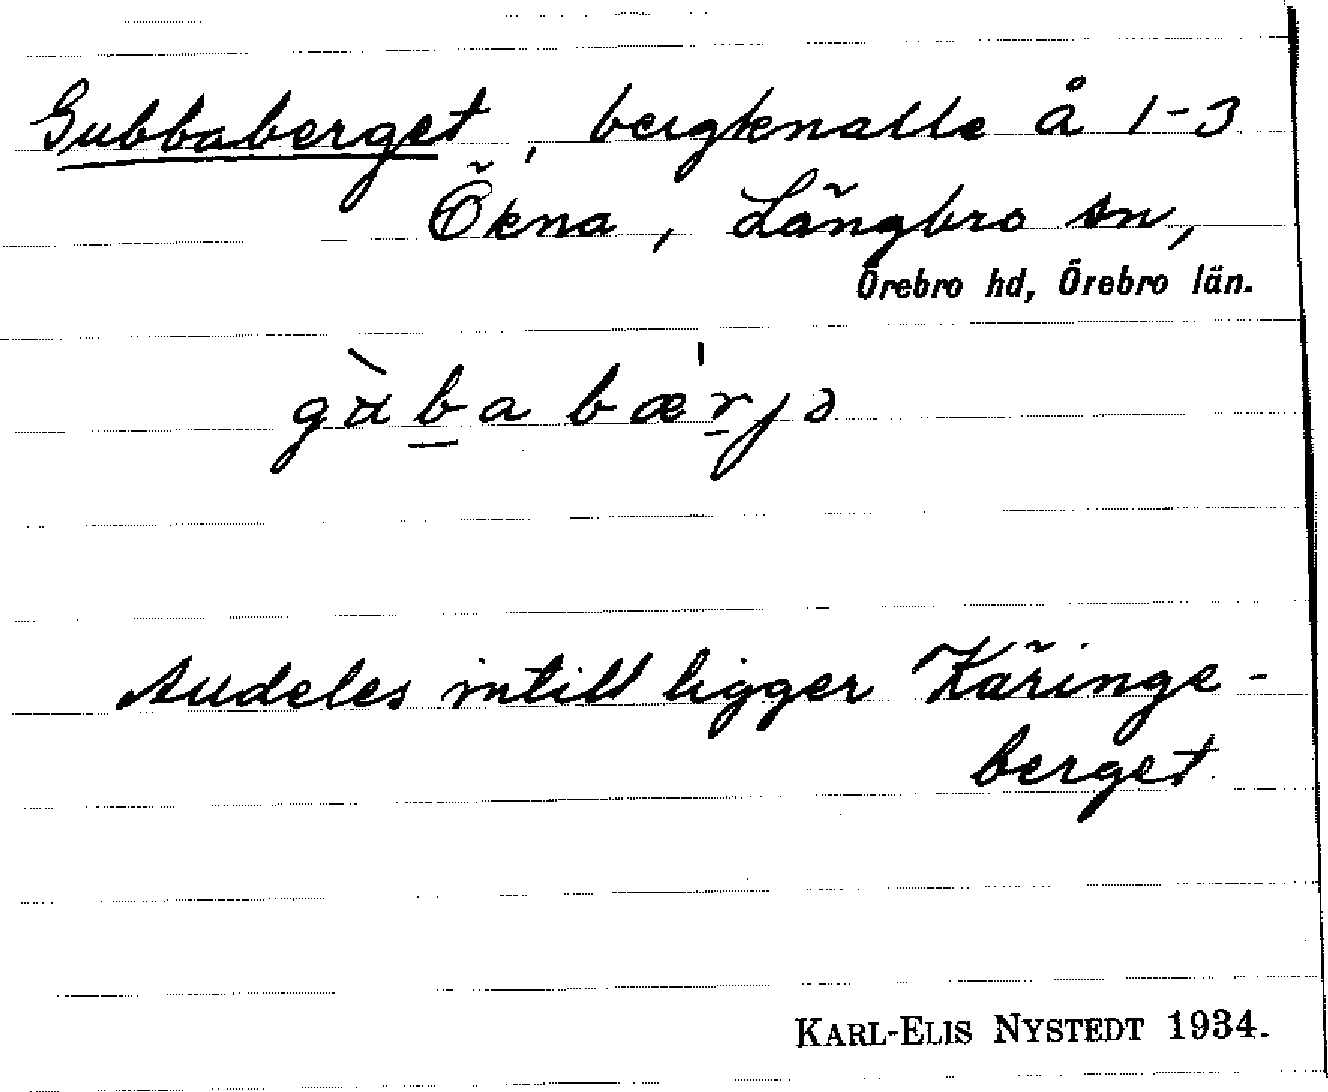 Gubbaberget, bergknalle å 1-3
Ökna, Längbro sn,
Örebro hd, Örebro län.
gùba bærjə
Alldeles intill ligger Käringe-
berget
KARL-ELIS NYSTEDT 1934.